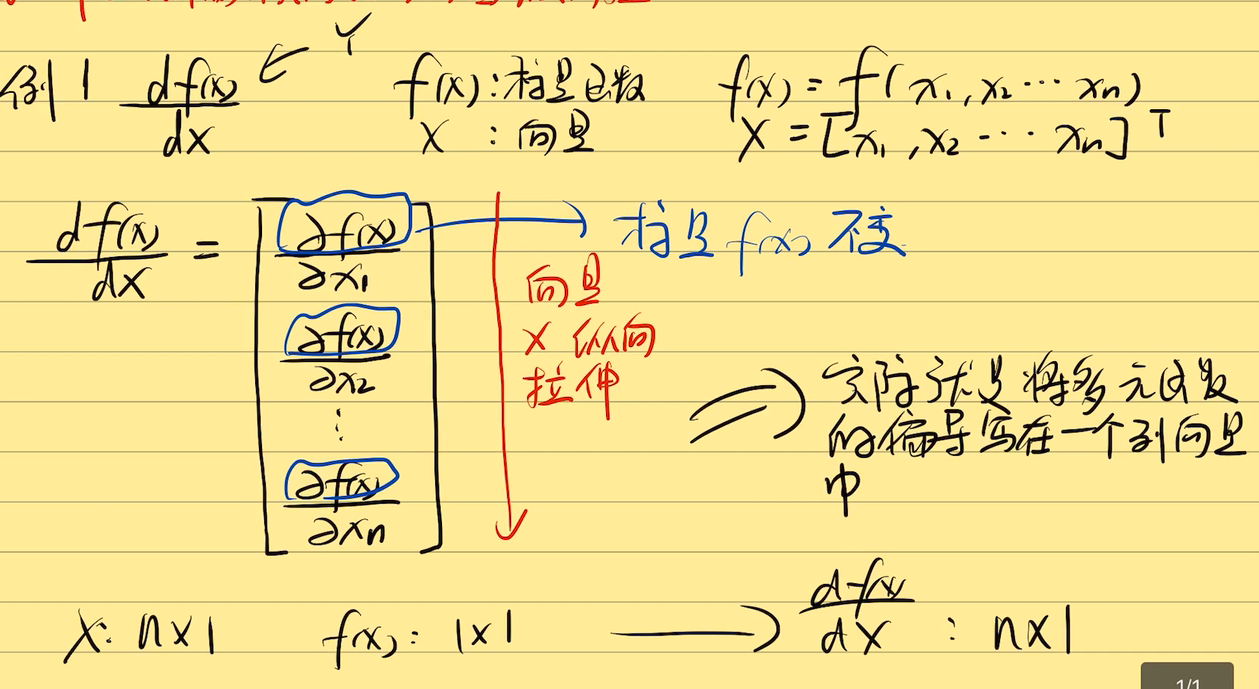 例1 df(x)/dX ← Y f(x):标量函数 f(x)=f(x₁,x₂⋯xₙ)
X :向量 X=[x₁,x₂⋯xₙ]ᵀ
df(x)/dX = [∂f(x)/∂x₁ → 标量f(x)不变
∂f(x)/∂x₂
⋮
∂f(x)/∂xₙ]
向量
X纵向
拉伸
⇒ 实际就是将多元函数
的偏导写在一个列向量
中
X: n×1 f(x): 1×1 → df(x)/dX : n×1
1/1